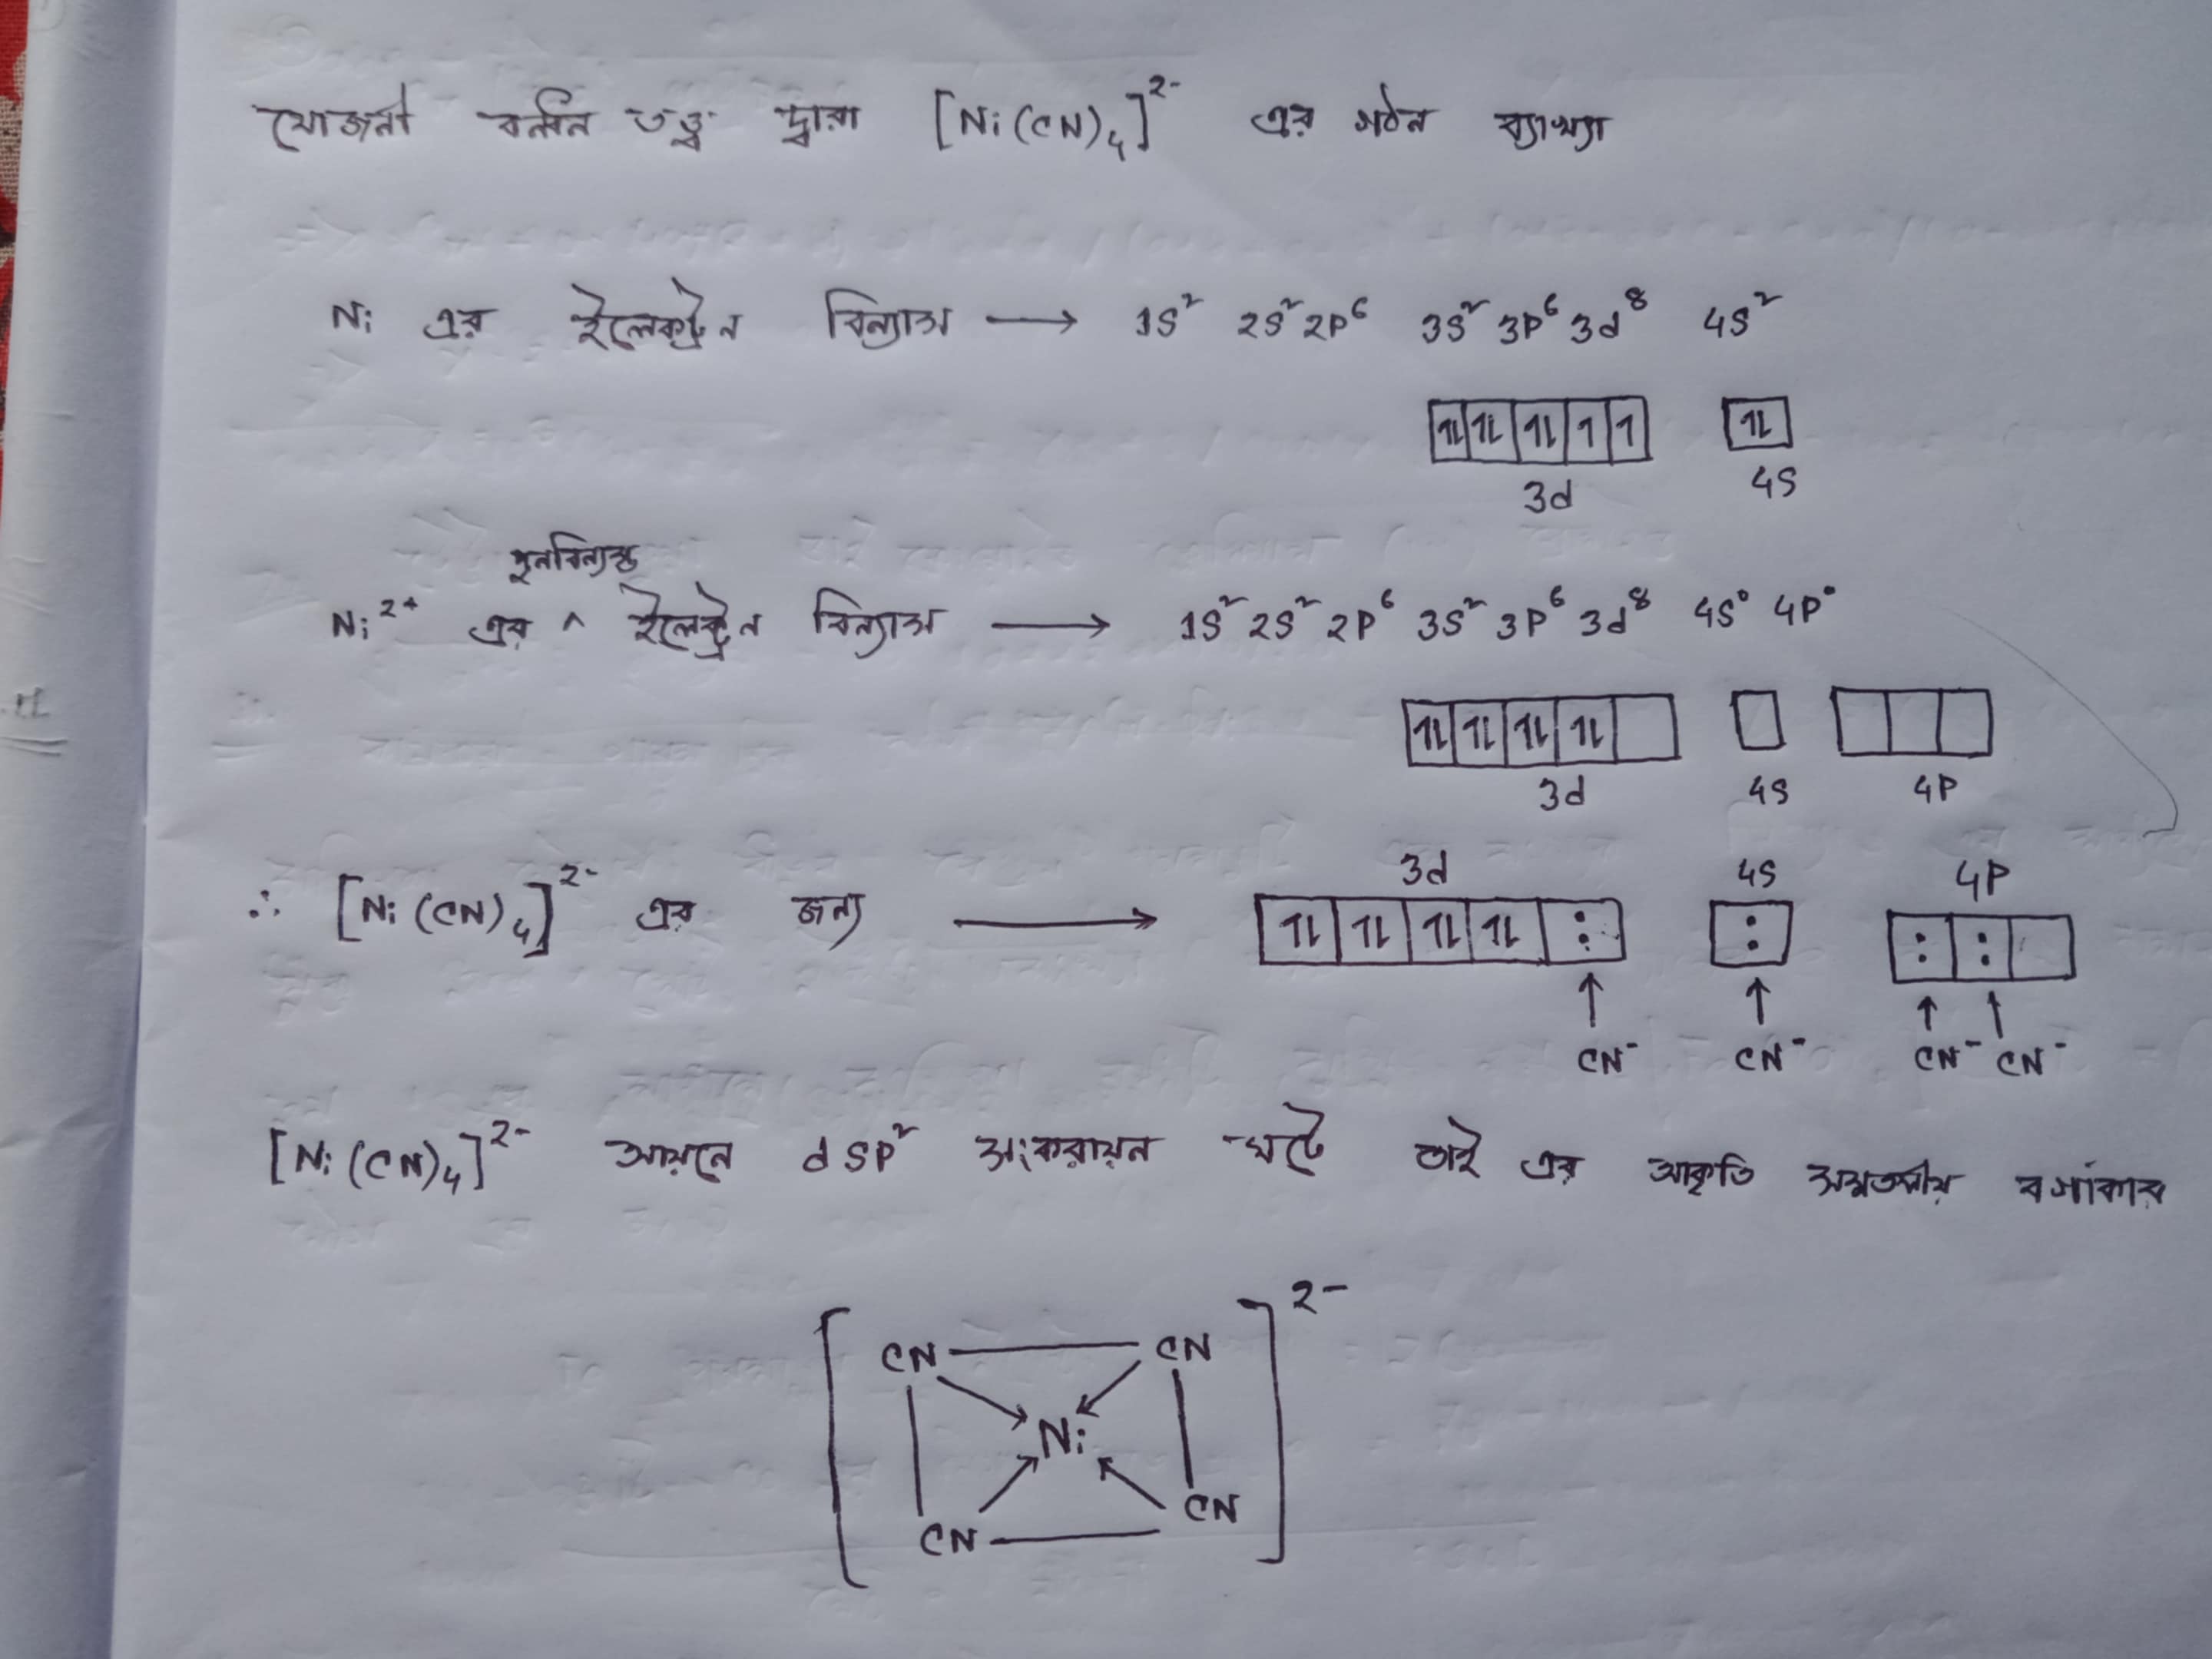 যোজনী বন্ধন তত্ত্ব দ্বারা [Ni(CN)₄]²⁻ এর গঠন ব্যাখ্যা
Ni এর ইলেকট্রন বিন্যাস → 1S² 2S² 2P⁶ 3S² 3P⁶ 3d⁸ 4S²
⥮ ⥮ ⥮ ↿ ↿ ⥮
3d 4S
পুনর্বিন্যস্ত
Ni²⁺ এর ^ ইলেকট্রন বিন্যাস → 1S² 2S² 2P⁶ 3S² 3P⁶ 3d⁸ 4S⁰ 4P⁰
⥮ ⥮ ⥮ ⥮
3d 4S 4P
3d 4S 4P
∴ [Ni(CN)₄]²⁻ এর জন্য → ⥮ ⥮ ⥮ ⥮ : : : :
↑ ↑ ↑ ↑
CN⁻ CN⁻ CN⁻ CN⁻
[Ni(CN)₄]²⁻ আয়নে dSP² সংকরায়ন ঘটে তাই এর আকৃতি সমতলীয় বর্গাকার
2-
CN CN
Ni
CN CN